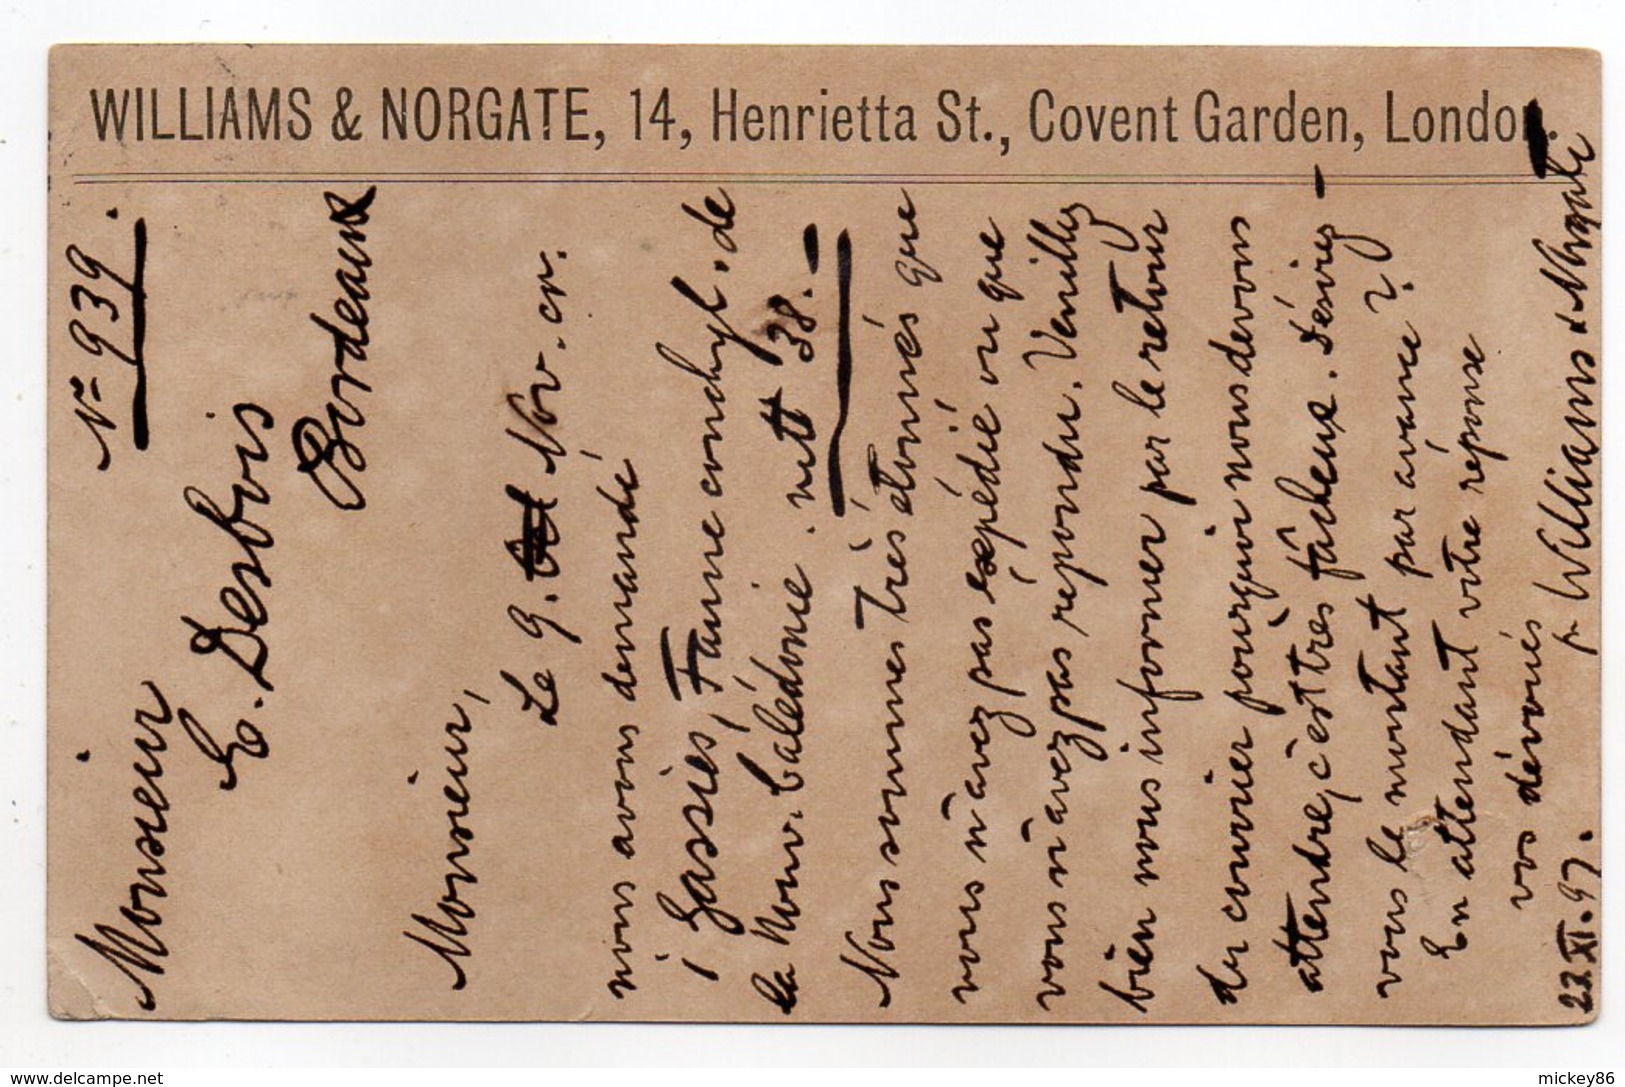 WILLIAMS & NORGATE, 14, Henrietta St., Covent Garden, London.
No 939.
Monsieur
E. Desbois
Bordeaux
Monsieur,
Le 9. Nov. cr.
nous avons demandé
1 Gassies, Faune conchyl. de
la Nouv. Calédonie. nett 38.-
Nous sommes très étonnés que
vous n'avez pas expédié ou que
vous n'avez pas repondu. Veuillez
bien nous informer par le retour
der courrier pourquoi nous devons
attendre, c'est très fâcheux. Désirez-
vous le montant par avance?
En attendant votre réponse
vos dévoués
22.XI.97. pr Williams & Norgate
www.delcampe.net
mickey86